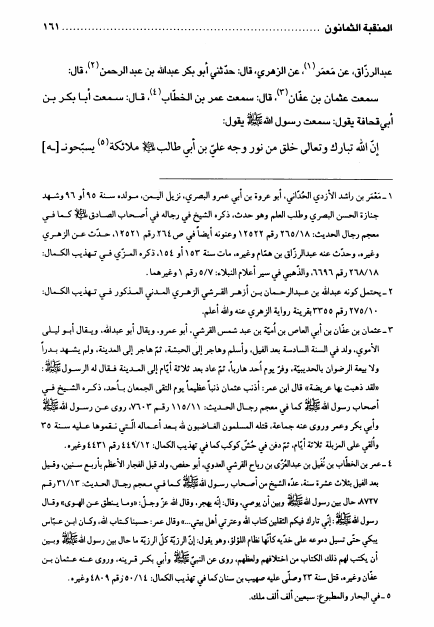 المنقبة الثمانون ................................................................ ١٦١
عبدالرزّاق، عن مَعمَر(١)، عن الزهري، قال: حدّثني أبو بكر عبدالله بن عبد الرحمن(٢)، قال:
سمعت عثمان بن عفّان(٣)، قال: سمعت عمر بن الخطّاب(٤)، قال: سمعت أبا بكر بن
أبي قحافة يقول: سمعت رسول الله ﷺ يقول:
إنّ الله تبارك وتعالى خلق من نور وجه عليّ بن أبي طالب ﷷ ملائكة(٥) يسبّحونـ [ـه]
١ ـ مَعْمَر بن راشد الأزدي الحُدّاني، أبو عروة بن أبي عمرو البصري، نزيل اليمن، مولده سنة ٩٥ أو ٩٦ وشهد
جنازة الحسن البصري وطلب العلم وهو حدث، ذكره الشيخ في رجاله في أصحاب الصادق ﷷ كما في
معجم رجال الحديث: ٢٦٥/١٨ رقم ١٢٥٢٢ وعنونه أيضاً في ص ٢٦٤ رقم ١٢٥٢١، حدّث عن الزهري
وغيره، وحدّث عنه عبدالرزّاق بن همّام وغيره، مات سنة ١٥٣ أو ١٥٤، ذكره المزّي في تهذيب الكمال:
٢٦٨/١٨ رقم ٦٦٩٦، والذهبي في سير أعلام النبلاء: ٥/٧ رقم ١ وغيرهما.
٢ ـ يحتمل كونه عبدالله بن عبدالرحمان بن أزهر القرشي الزهري المدني المذكور في تهذيب الكمال:
٢٧٥/١٠ رقم ٣٣٥٥ بقرينة رواية الزهري عنه والله أعلم.
٣ ـ عثمان بن عفّان بن أبي العاص بن أميّة بن عبد شمس القرشي، أبو عمرو، ويقال أبو عبدالله، ويقال أبو ليلى
الأموي، ولد في السنة السادسة بعد الفيل، وأسلم وهاجر إلى الحبشة، ثمّ هاجر إلى المدينة، ولم يشهد بدراً
ولا بيعة الرضوان بالحديبيّة، وفرّ يوم أحد هارباً، ثمّ عاد بعد ثلاثة أيّام إلى المدينة فقال له الرسول ﷺ:
«لقد ذهبت بها عريضة» قال ابن عمر: أذنب عثمان ذنباً عظيماً يوم التقى الجمعان بأحد، ذكره الشيخ في
أصحاب رسول الله ﷺ كما في معجم رجال الحديث: ١١٥/١١ رقم ٧٦٠٣، روى عن رسول الله ﷺ
وأبي بكر وعمر وروى عنه جماعة، قتله المسلمون الغاضبون لله بعد أعماله الّتي نقموها عليه سنة ٣٥
وألقي على المزبلة ثلاثة أيّام، ثمّ دفن في حُشّ كوكب كما في تهذيب الكمال: ٤٤٩/١٢ رقم ٤٤٣١ وغيره.
٤ ـ عمر بن الخطّاب بن نُفَيل بن عبدالعُزّى بن رياح القرشي العدوي، أبو حفص، ولد قبل الفجار الأعظم بأربع سنين، وقيل
بعد الفيل بثلاث عشرة سنة، عدّه الشيخ من أصحاب رسول الله ﷺ كما في معجم رجال الحديث: ٣١/١٣ رقم
٨٧٢٧، حال بين رسول الله ﷺ وبين أن يوصي، وقال: إنّه يهجر، وقال الله عزّ وجلّ: «وما ينطق عن الهوى» وقال
رسول الله ﷺ: إنّي تارك فيكم الثقلين كتاب الله وعترتي أهل بيتي...» وقال عمر: حسبنا كتاب الله، وكان ابن عبّاس
يبكي حتّى تسيل دموعه على خدّيه كأنّها نظام اللؤلؤ، وهو يقول: إنّ الرزيّة كلّ الرزيّة ما حال بين رسول الله ﷺ وبين
أن يكتب لهم ذلك الكتاب من اختلافهم ولغطهم، روى عن النبيّ ﷺ وأبي بكر قرينه، وروى عنه عثمان بن
عفّان وغيره، قتل سنة ٢٣ وصلّى عليه صهيب بن سنان كما في تهذيب الكمال: ٥٠/١٤ رقم ٤٨٠٩ وغيره.
٥ ـ في البحار والمطبوع: سبعين ألف ألف ملك.